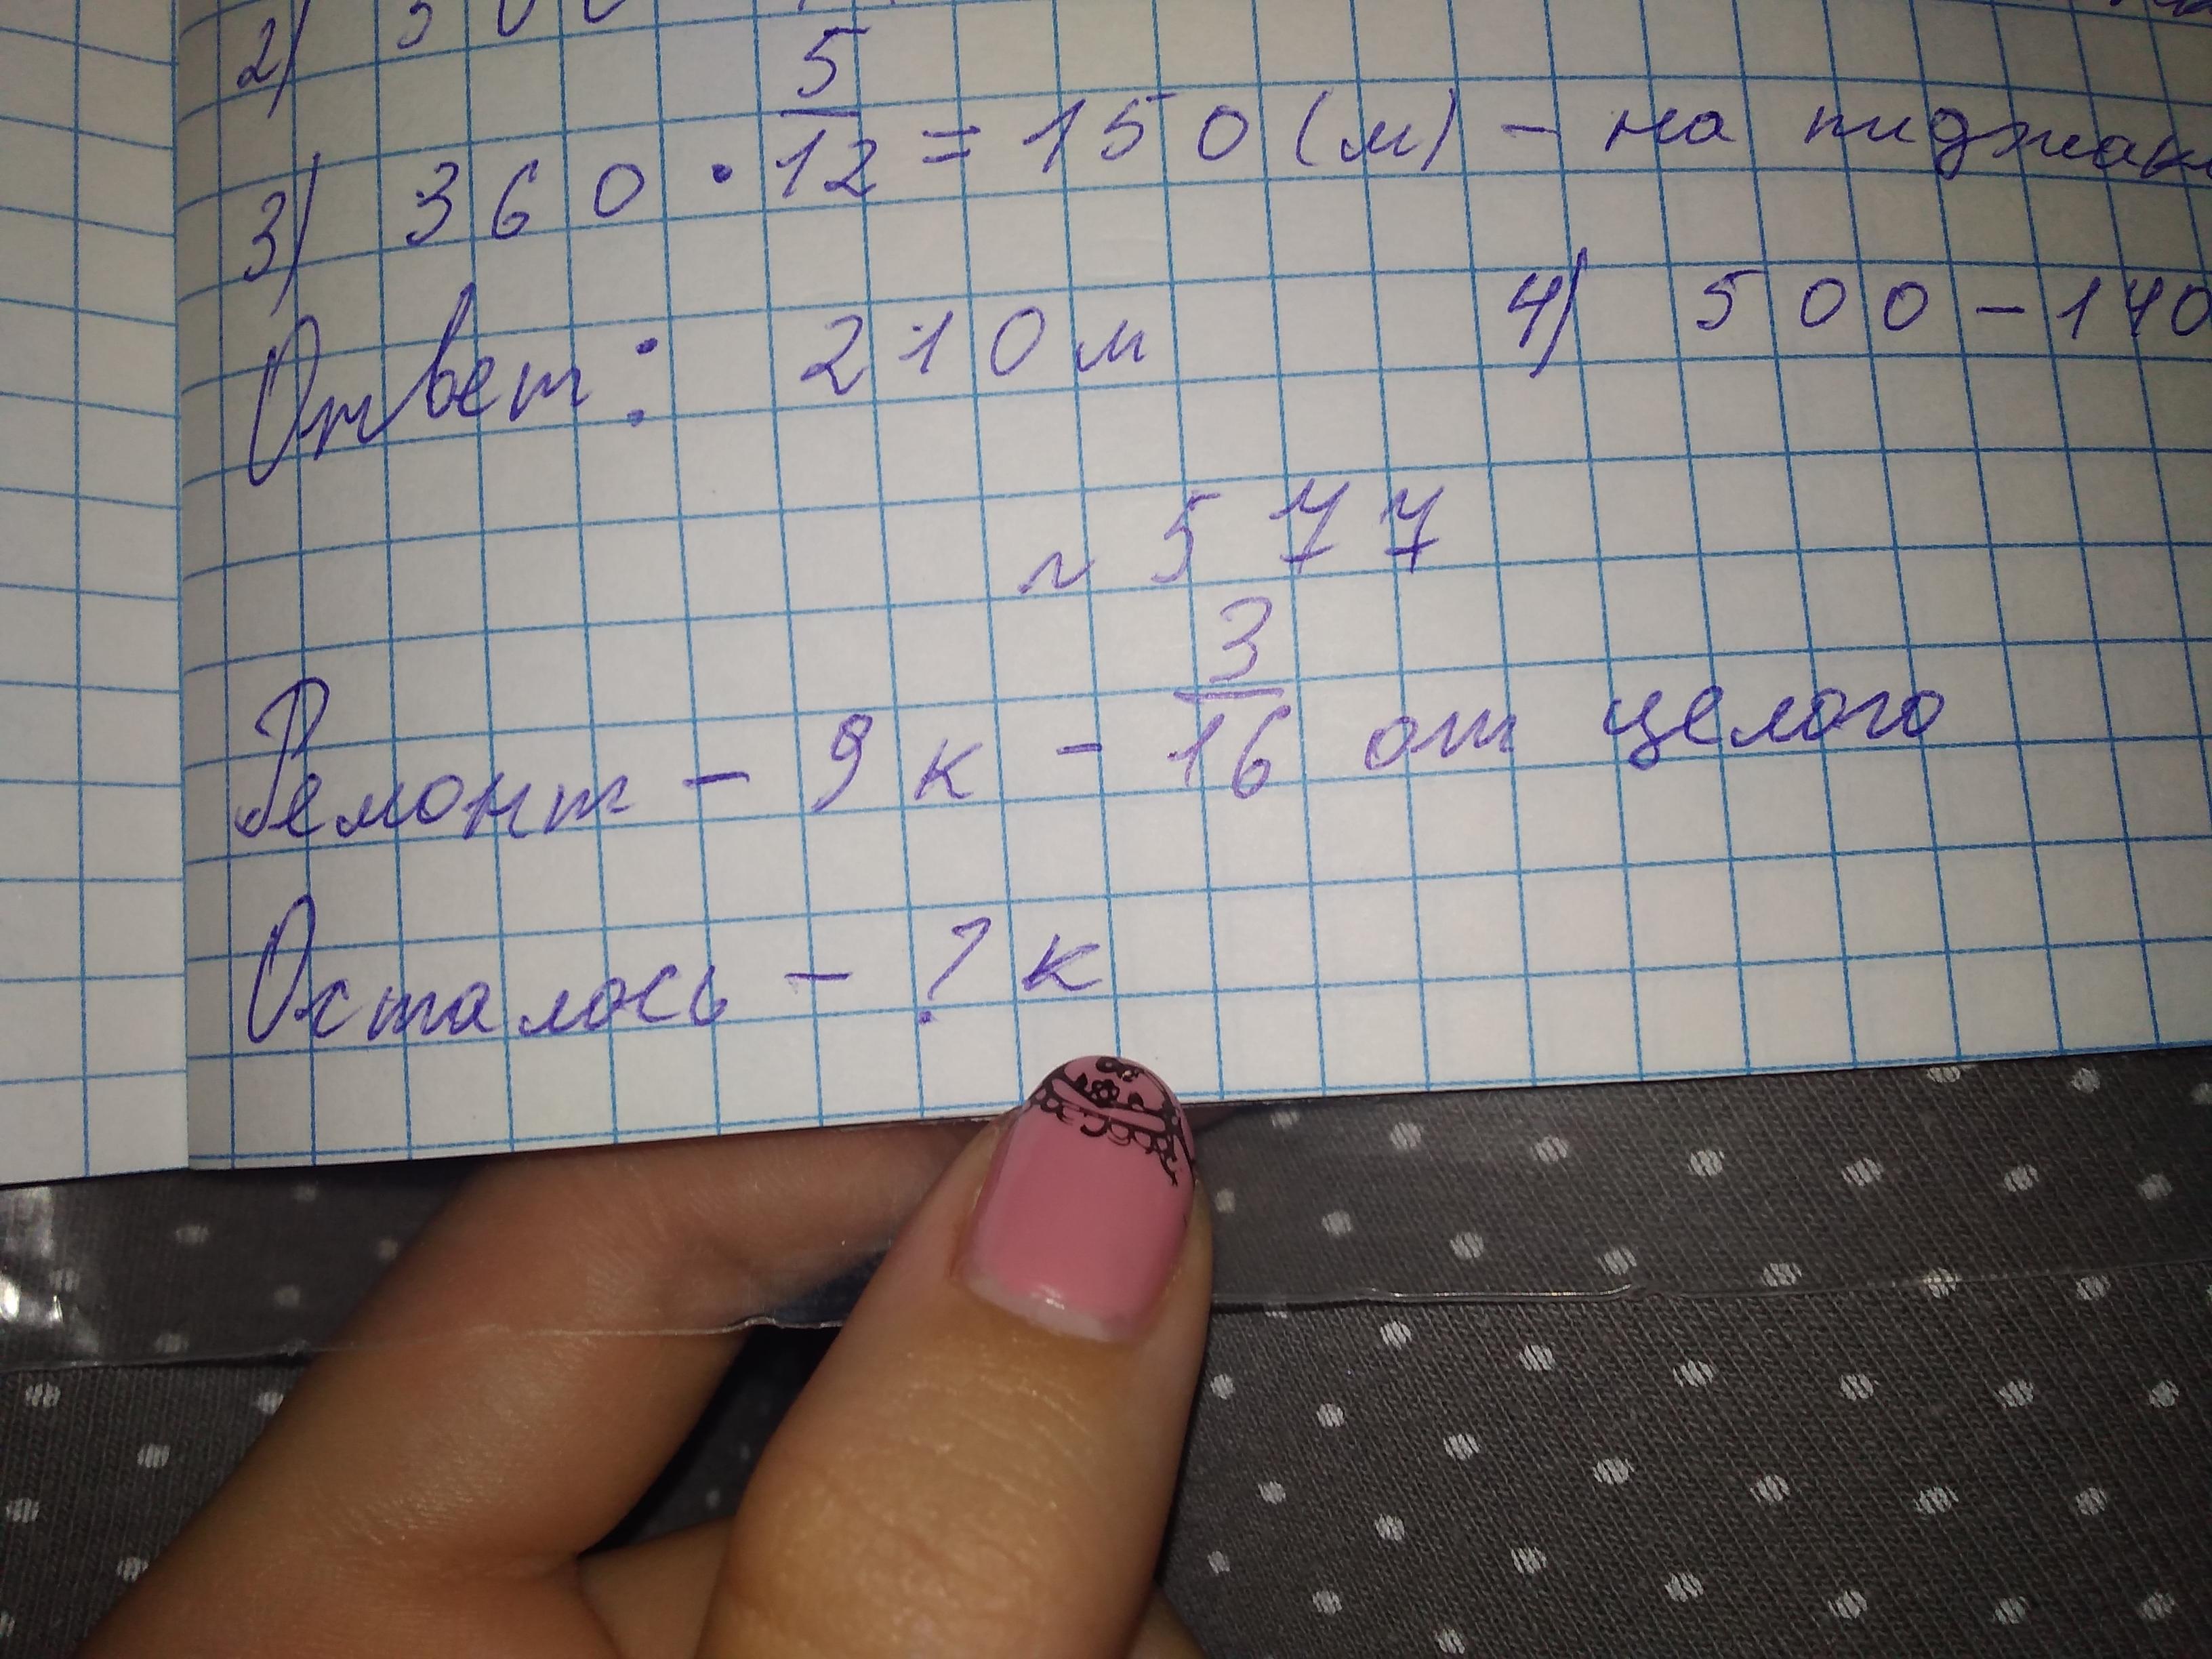 2)
3) 360 · 5/12 = 150 (м) - на пиджаки
Ответ: 210 м
4) 500 - 140
№ 577
Ремонт - 9 к - 3/16 от целого
Осталось - ? к